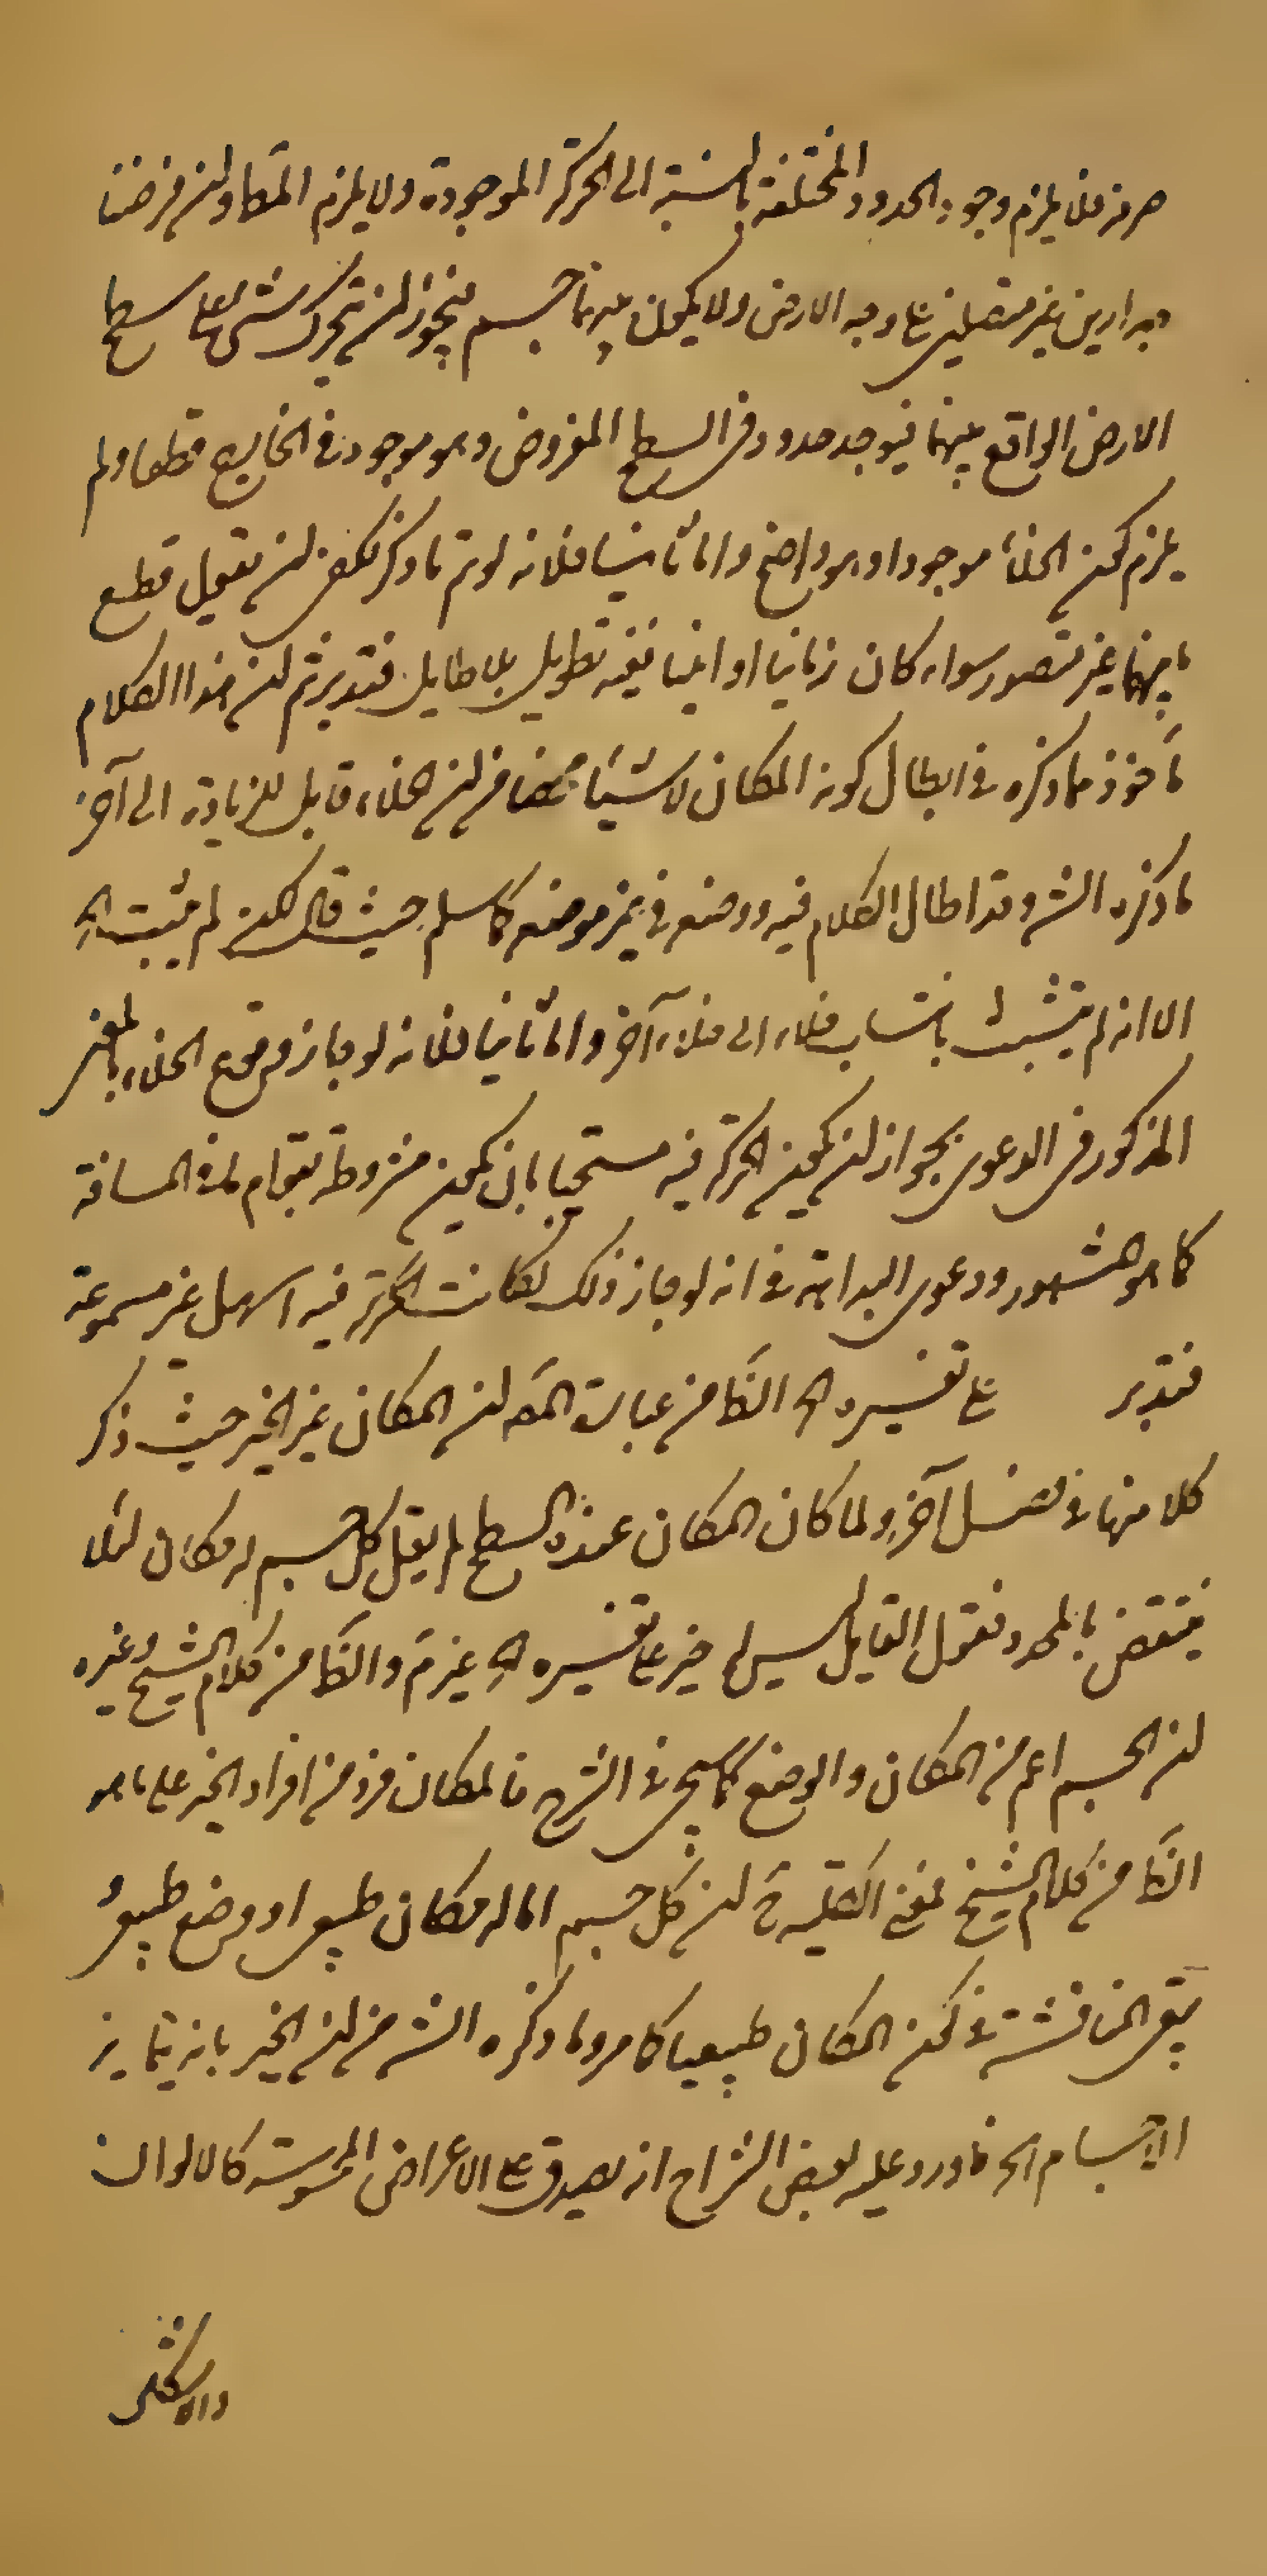 صرفة فلا يلزم وجود الحدود المختلفة بالنسبة الى الحركة الموجودة ولا يلزم المحا ولئن فرضنا
جدارين غير متصلين على وجه الارض ولا يكون بينهما جسم فيجوز ان يتحرك شئ على سطح
الارض الواقع بينهما فيوجد حدود في السطح المفروض وهو موجود في الخارج قطعا ولم
يلزم كون الخلأ موجودا وهو واضح واما ثانيا فلانه لو تم ما ذكر نكفى ان نقول قطع
ما بينهما غير متصور سواء كان زمانيا او انيا ففيه تطويل بلا طايل فتدبر ثم ان هذا الكلام
مأخوذ مما ذكره في ابطال كون المكان لا شيئا محضا من ان الخلاء قابل للزيادة الى آخر
ما ذكره الش وقد اطال الكلام فيه ووضعه في غير موضعه كما سلم حيث قال لكن لم يثبت الخ
الا انه لم يتشبث بانتساب خلاء الى خلاء آخر واما ثانيا فلانه لو جاز وقوع الخلاء بالمعنى
المذكور في الدعوى بجواز ان يكون الحركة فيه مستحيلا بان يكون مشروطة بقوام لما في المسافة
كما هو المشهور ودعوى البداهة في انه لو جاز ذلك لكانت الحركة فيه اسهل غير مسموعة
فتدبر على تفسيره الخ الظا من عبارة المصه ان المكان غير الحيز حيث ذكر
كلا منها في فصل آخر ولما كان المكان عنده السطح لم يقل كل جسم له مكان لئلا
ينتقض بالمحدد فقول القايل ليس له حيز على تفسيره الخ غير تم والظا من كلام الشيخ وغيره
ان الجسم اعم من المكان والوضع كما سيجئ في الشرح فالمكان فرد من افراد الحيز على ما هو
الظا من كلام الشيخ فمعنى الكلية ح ان كل جسم اما له مكان طبيعى او وضع طبيعى
يبقى المناقشة في كون المكان طبيعيا كما مر وما ذكره الش من ان الحيز بانه يتمايز
الاجسام الخ ما ورد عليه بعض الشراح انه يصدق على الاعراض المحسوسة كالالوان
والاشكال